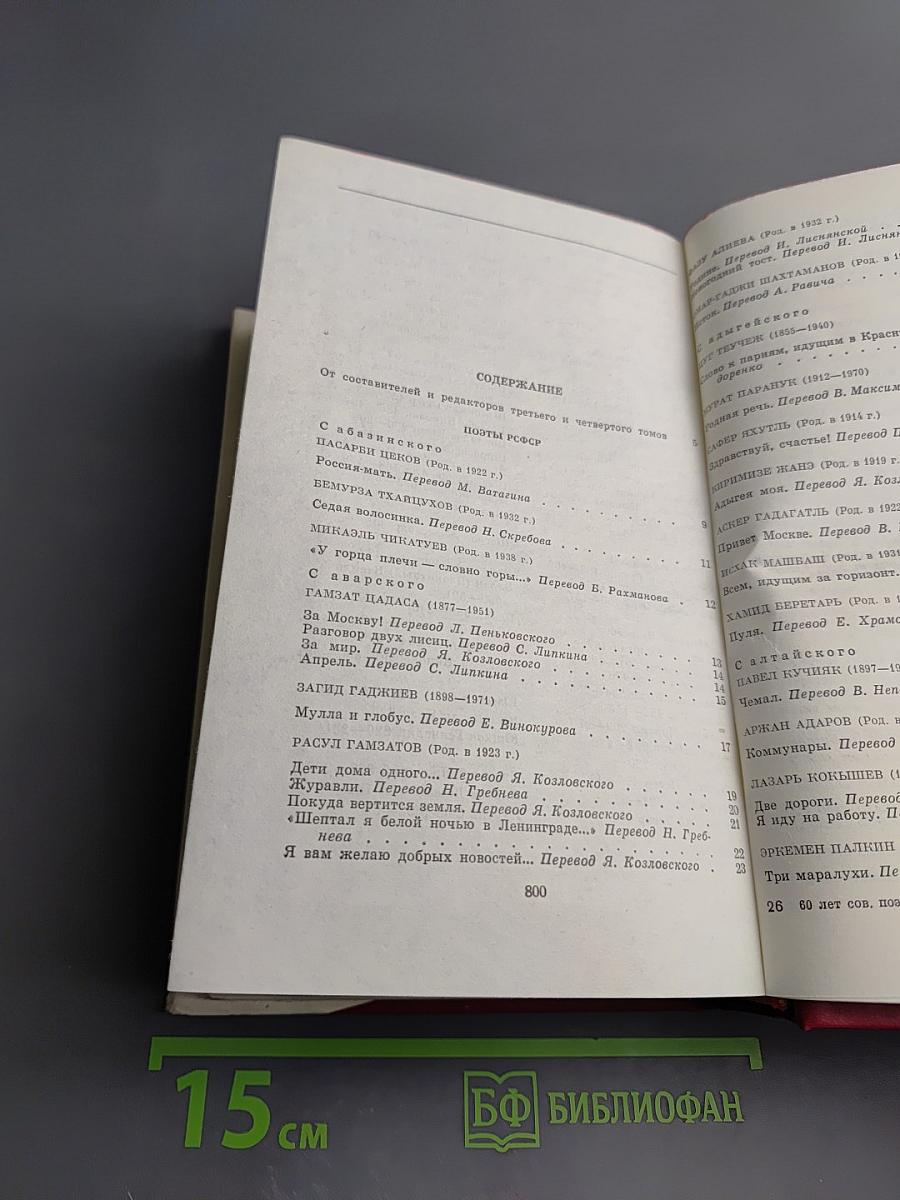 СОДЕРЖАНИЕ
От составителей и редакторов третьего и четвертого томов 5
ПОЭТЫ РСФСР
С абазинского
ПАСАРБИ ЦЕКОВ (Род. в 1922 г.)
Россия-мать. Перевод М. Ватагина . . . . . . . . . 9
БЕМУРЗА ТХАЙЦУХОВ (Род. в 1932 г.)
Седая волосинка. Перевод Н. Скребова . . . . . . . . 11
МИКАЭЛЬ ЧИКАТУЕВ (Род. в 1938 г.)
«У горца плечи — словно горы...» Перевод Б. Рахманова . 12
С аварского
ГАМЗАТ ЦАДАСА (1877—1951)
За Москву! Перевод Л. Пеньковского . . . . . . . . 13
Разговор двух лисиц. Перевод С. Липкина . . . . . . 14
За мир. Перевод Я. Козловского . . . . . . . . . 14
Апрель. Перевод С. Липкина . . . . . . . . . . 15
ЗАГИД ГАДЖИЕВ (1898—1971)
Мулла и глобус. Перевод Е. Винокурова . . . . . . . 17
РАСУЛ ГАМЗАТОВ (Род. в 1923 г.)
Дети дома одного... Перевод Я. Козловского . . . . . . 19
Журавли. Перевод Н. Гребнева . . . . . . . . . . 20
Покуда вертится земля. Перевод Я. Козловского . . . . . 21
«Шептал я белой ночью в Ленинграде...» Перевод Н. Греб-
нева . . . . . . . . . . . . . . . . . 22
Я вам желаю добрых новостей... Перевод Я. Козловского . 23
800
АЛИЕВА (Род. в 1932 г.)
Перевод И. Лиснянской . .
тост. Перевод И. Лиснян
ШАХТАМАНОВ (Род. в
Перевод А. Равича . . . .
С адыгейского
ТЕУЧЕЖ (1855—1940)
к париям, идущим в Красн
доренко . . . . . . .
ПАРАНУК (1912—1970)
речь. Перевод В. Максим
ЯХУТЛЬ (Род. в 1914 г.)
Здравствуй, счастье! Перевод
КИРИМИЗЕ ЖАНЭ (Род. в 1919 г.
Адыгея моя. Перевод Я. Козл
АСКЕР ГАДАГАТЛЬ (Род. в 1922
Привет Москве. Перевод В.
ИСХАК МАШБАШ (Род. в 1931
Всем, идущим за горизонт.
ХАМИД БЕРЕТАРЬ (Род. в
Пуля. Перевод Е. Храмо
С алтайского
ПАВЕЛ КУЧИЯК (1897—19
Чемал. Перевод В. Неп
АРЖАН АДАРОВ (Род. в
Коммунары. Перевод
ЛАЗАРЬ КОКЫШЕВ (1
Две дороги. Перевод
Я иду на работу. Пе
ЭРКЕМЕН ПАЛКИН
Три маралухи. Пе
26 60 лет сов. поэ
15 см
БФ БИБЛИОФАН